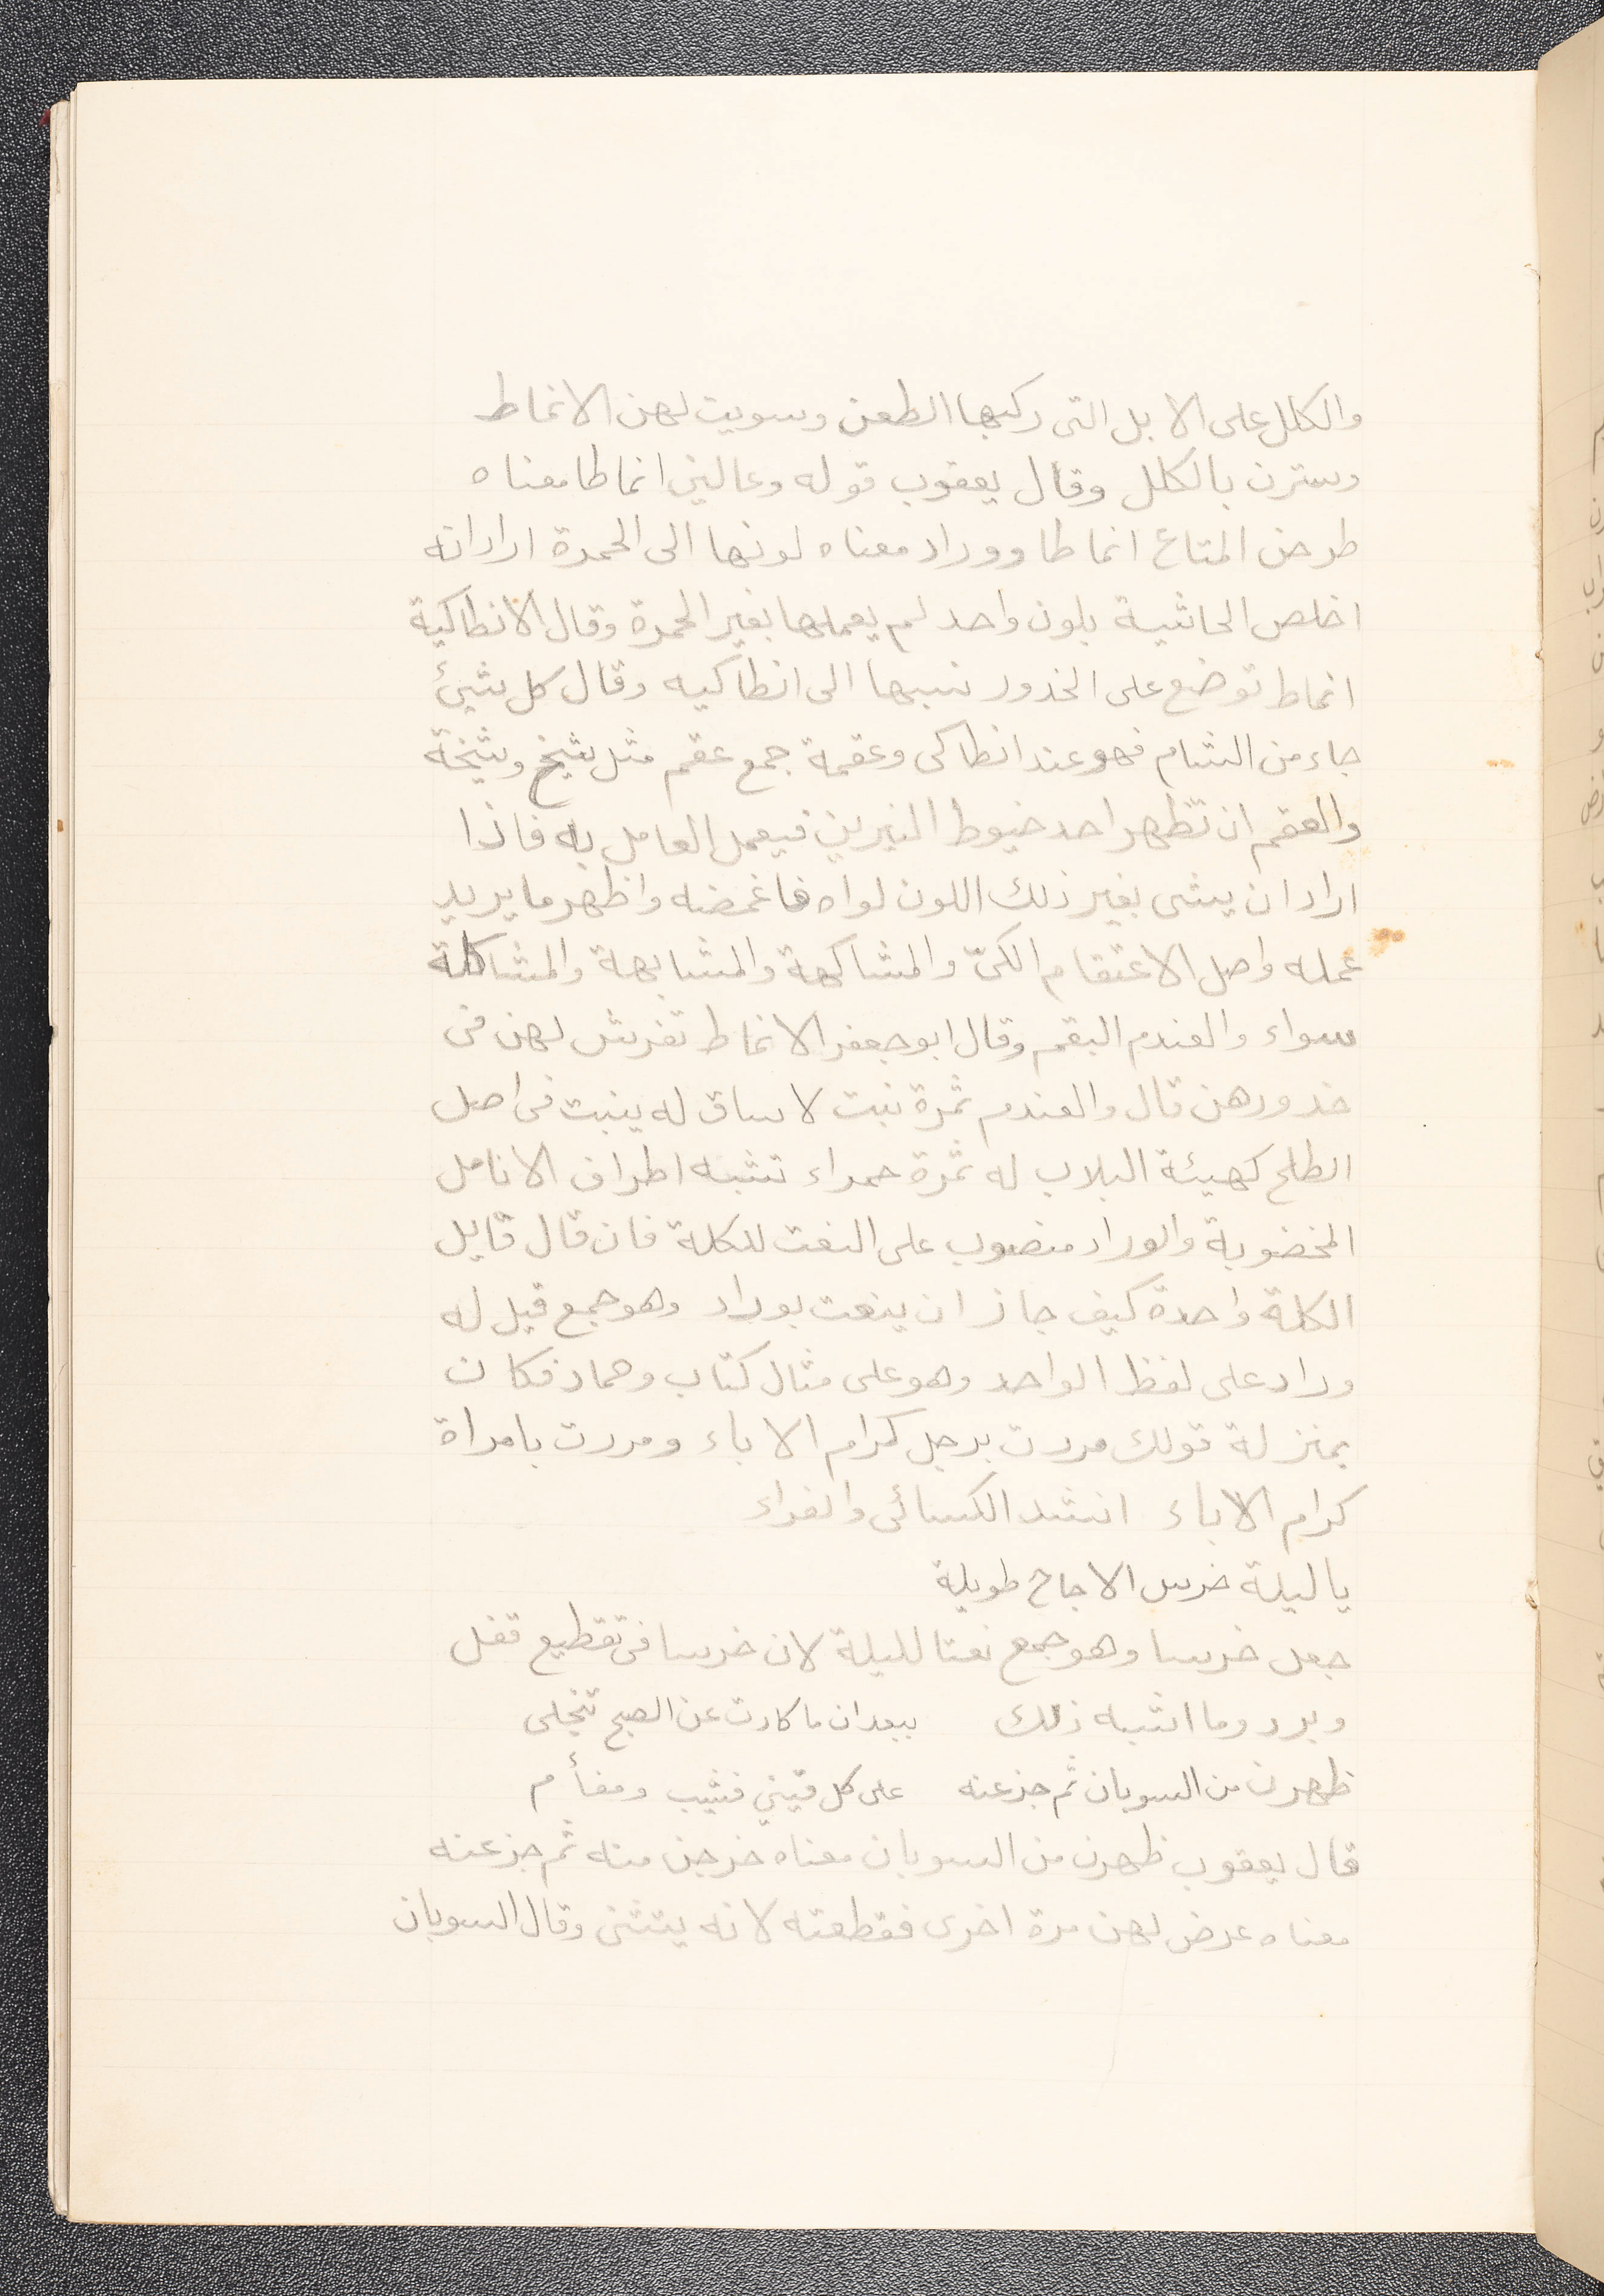 والكلل على الابل التى ركبها الظعن وسويت لهن الانماط
وسترن بالكلل وقال يعقوب قوله وعالين انماطا معناه
طرحن المتاع انماطا ووراد معناه لونها الى الحمرة اراد انه
اخلص الحاشية بلون واحد لم يعملها بغير الحمرة وقال الانطاكية
انماط توضع على الخدور نسبها الى انطاكيه وقال كل شيئ
جاء من الشام فهو عند انطاكى وعقمة جمع عقم مثل شيخ وشيخة
والعقم ان تظهر احد خيوط النيرين فيعمل العامل به فاذا
اراد ان يشى بغير ذلك اللون لواه فاغمضه واظهر ما يريد
عمله واصل الاعتقام الكىّ والمشاكهة والمشابهة والمشاكلة
سواء والعندم البقم وقال ابو جعفر الانماط تفرش لهن فى
خدورهن قال والعندم ثمرة نبت لا ساق له ينبت فى اصل
الطلح كهيئة البلاب له ثمرة حمراء تشبه اطراف الانامل
المخضوبة والوراد منصوب على النعت للكلة فان قال قايل
الكلة واحدة كيف جاز ان ينعت بوراد وهو جمع قيل له
وراد على لفظ الواحد وهو على مثال كتاب وحمار فكان
بمنزلة قولك مررت برجل كرام الاباء ومررت بامراة
كرام الاباء انشد الكسائى والفراء
يا ليلة خرس الاجاج طويلة
جعل خرسا وهو جمع نعتا لليلة لان خرسا فى تقطيع قفل
وبرد وما اشبه ذلك ببعدان ما كادت عن الصبح تنجلى
ظهرن من السوبان ثم جزعنه على كل قينى قشيب ومفأم
قال يعقوب ظهرن من السوبان معناه خرجن منه ثم جزعنه
معناه عرض لهن مرة اخرى فقطعته لانه يتثنى وقال السوبان